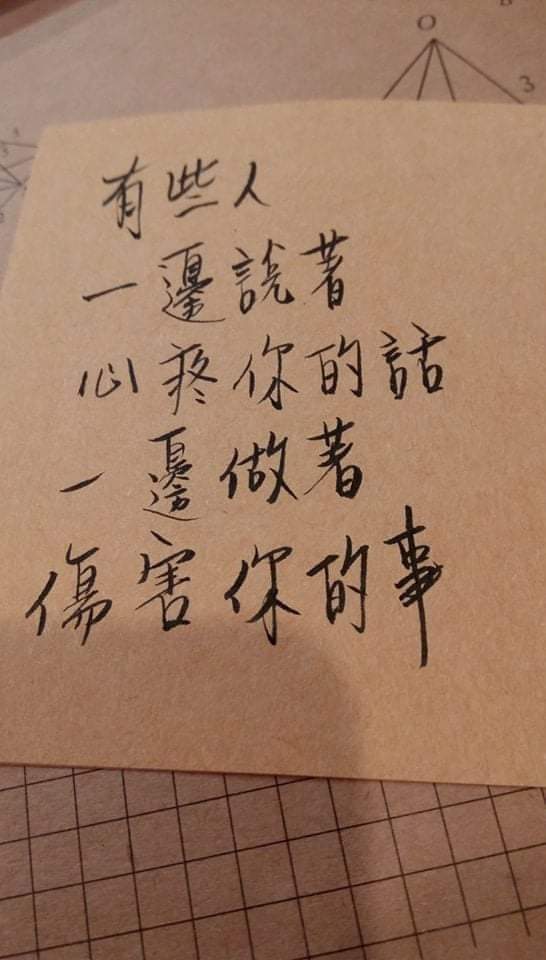 O
3
有些人
一邊說著
心疼你的話
一邊做著
傷害你的事